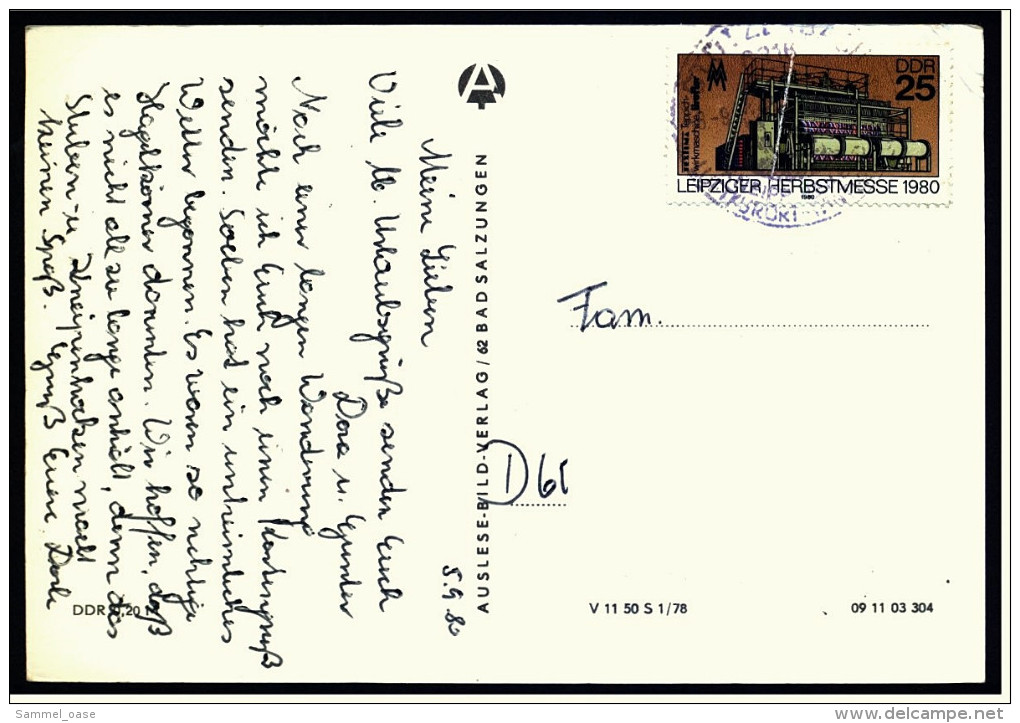 5.9.80
Meine Lieben
Viele lb. Urlaubsgrüße senden Euch
Dora u. Gunter
Nach einer langen Wanderung
möchte ich Euch noch einen Kartengruß
senden. Soeben hat ein unheimliches
Wetter begonnen. Es waren so richtige
Hagelkörner darunter. Wir hoffen, daß
es nicht all zu lange anhält, denn das
Stuben- u. Kneipenhocken macht
keinen Spaß. Gruß Eure
DDR 0.20
AUSLESE-BILD-VERLAG / 62 BAD SALZUNGEN
DDR
25
LEIPZIGER HERBSTMESSE 1980
1980
Fam.
D 61
V 11 50 S 1/78
09 11 03 304
Sammel_oase
www.delcampe.net